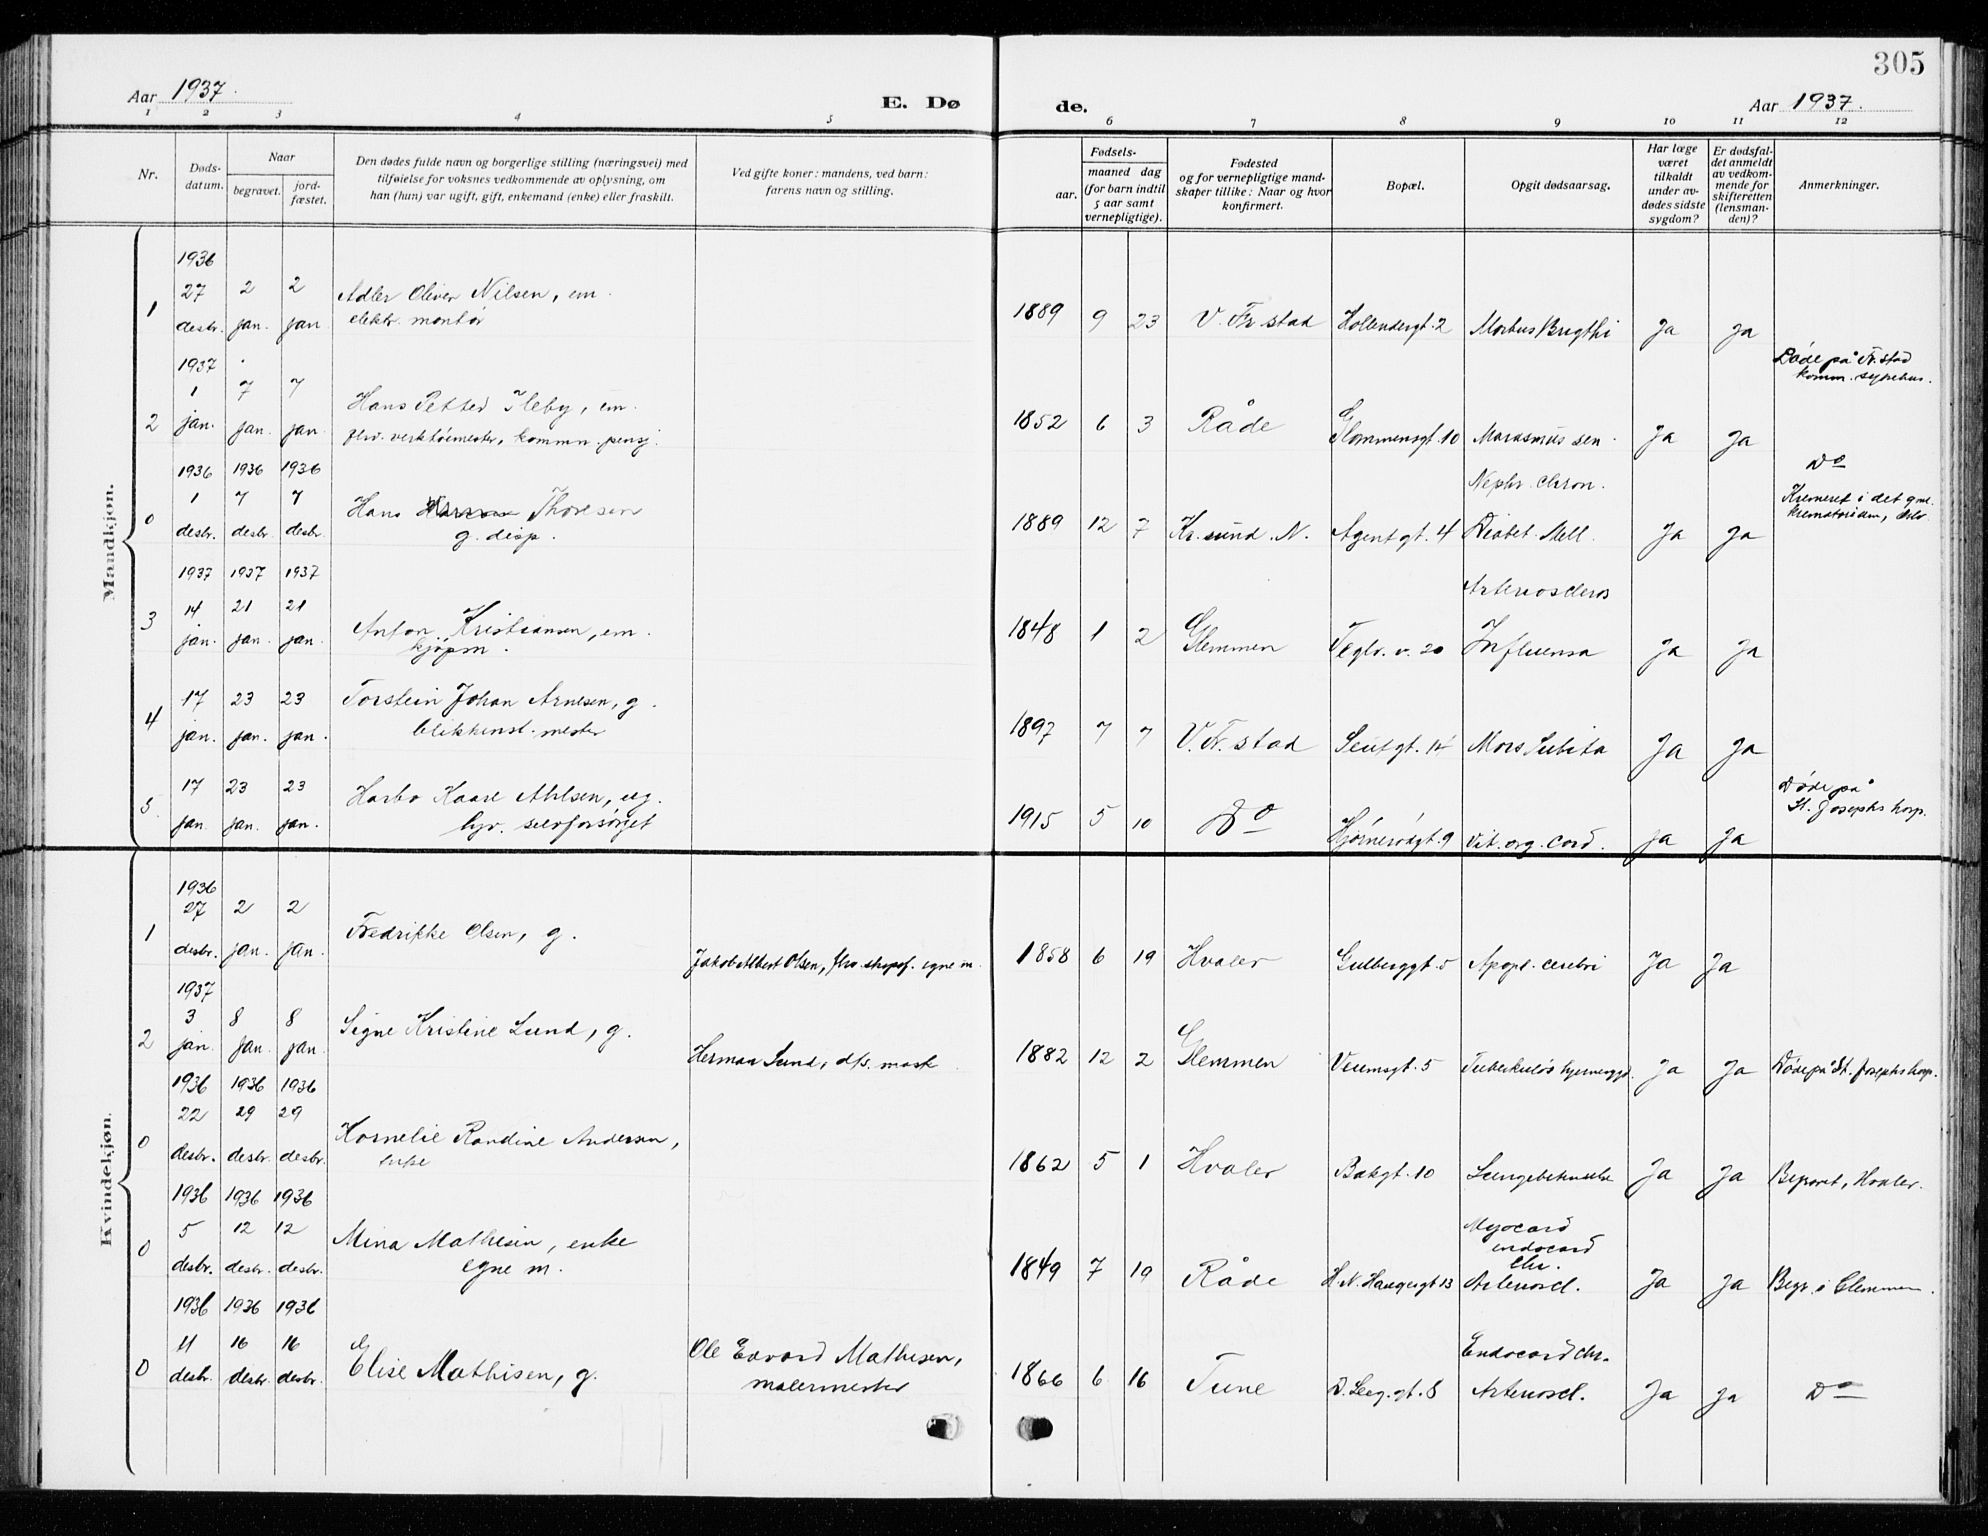 305
Aar 1937.
E. Dø
de.
Aar 1937.
1 2 3 4 5 6 7 8 9 10 11 12
Nr.
Døds-
datum.
Naar
begravet.
jord-
fæstet.
Den dødes fulde navn og borgerlige stilling (næringsvei) med
tilføielse for voksnes vedkommende av oplysning, om
han (hun) var ugift, gift, enkemand (enke) eller fraskilt.
Ved gifte koner: mandens, ved barn:
farens navn og stilling.
Fødsels-
aar.
maaned dag
(for barn indtil
5 aar samt
vernepligtige).
Fødested
og for vernepligtige mand-
skaper tillike: Naar og hvor
konfirmert.
Bopæl.
Opgit dødsaarsag.
Har læge
været
tilkaldt
under av-
dødes sidste
sygdom?
Er dødsfal-
det anmeldt
av vedkom-
mende for
skifteretten
(lensman-
den)?
Anmerkninger.
Mandkjøn.
1936
1 27 desbr. 2 jan. 2 jan. Adler Oliver Nilsen, em.
elektr. montør
1889 9 23 V. Fr.stad Hollendergt. 2 Morbus Brigthi Ja Ja
1937
2 1 jan. 7 jan. 7 jan. Hans Petter Ileby, em.
fhv. verktøimester, kommn. pensj.
1852 6 3 Råde Glommensgt. 10 Marasmus sen. Ja Ja
Døde på Fr.stad
komm. sykehus.
1936 1936 1936
0 1 desbr. 7 desbr. 7 desbr. Hans Thoresen
g. disp.
1889 12 7 Kr.sund. N. Agentgt. 4
Nephr. chron.
Diabet. Mell. Ja Ja
Do
Kremeret i det gml.
krematorium, Oslo
1937 1937 1937
3 14 jan. 21 jan. 21 jan. Anton Kristiansen, em.
kjøpm.
1848 1 2 Glemmen Teglv. v. 20
Arterioscleros
Influensa Ja Ja
4 17 jan. 23 jan. 23 jan. Torstein Johan Arnesen, g.
blikkensl. mester
1897 7 7 V. Fr.stad Seutgt. Mors Subita Ja Ja
5 17 jan. 23 jan. 23 jan. Harbo Kaare Ahlsen, ug.
selvforsørget
1915 5 10 Do Hjørnerødgt. 9 Vit. org. cord. Ja Ja
Døde på
St. Josephs hosp.
Kvindekjøn.
1936
1 27 desbr. 2 jan. 2 jan. Fredrikke Olsen, g.
Jakob Albert Olsen, fhv. skipsf. egne m.
1858 6 19 Hvaler Gulberggt. 5 Apopl. cerebri Ja Ja
1937
2 3 jan. 8 jan. 8 jan. Signe Kristine Lund, g.
Herman Lund, mask
1882 12 2 Glemmen Veumsgt. 5 Tuberkuløs Ja Ja Døde på St. Josephs hosp.
1936 1936 1936
0 22 desbr. 29 desbr. 29 desbr. Kornelie Randine Andersen,
enke
1862 5 1 Hvaler Bakgt. 10 Lungebetendelse Ja Ja Begravet, Hvaler.
1936 1936 1936
0 5 desbr. 12 desbr. 12 desbr. Mina Mathisen, enke
egne m.
1849 7 19 Råde H. N. Haugesgt 13
Myocard
endocard
chr.
Arterioscl. Ja Ja Begr. i Glemmen.
1936 1936 1936
0 11 desbr. 16 desbr. 16 desbr. Elise Mathisen, g.
Ole Edvard Mathisen,
malermester
1866 6 16 Tune
Endocard chr.
Arterioscl. Ja Ja Do